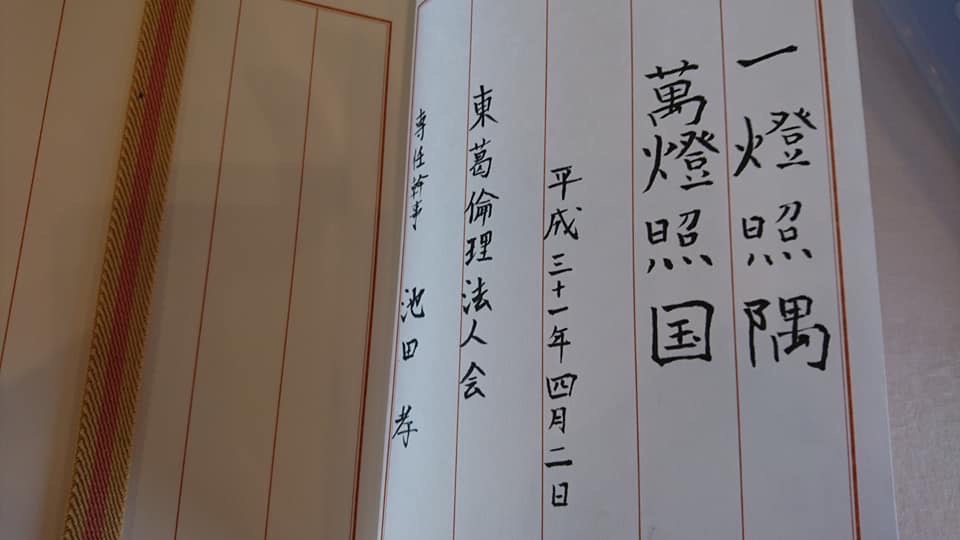 一燈照隅
萬燈照国
平成三十一年四月二日
東葛倫理法人会
専任幹事 池田 孝